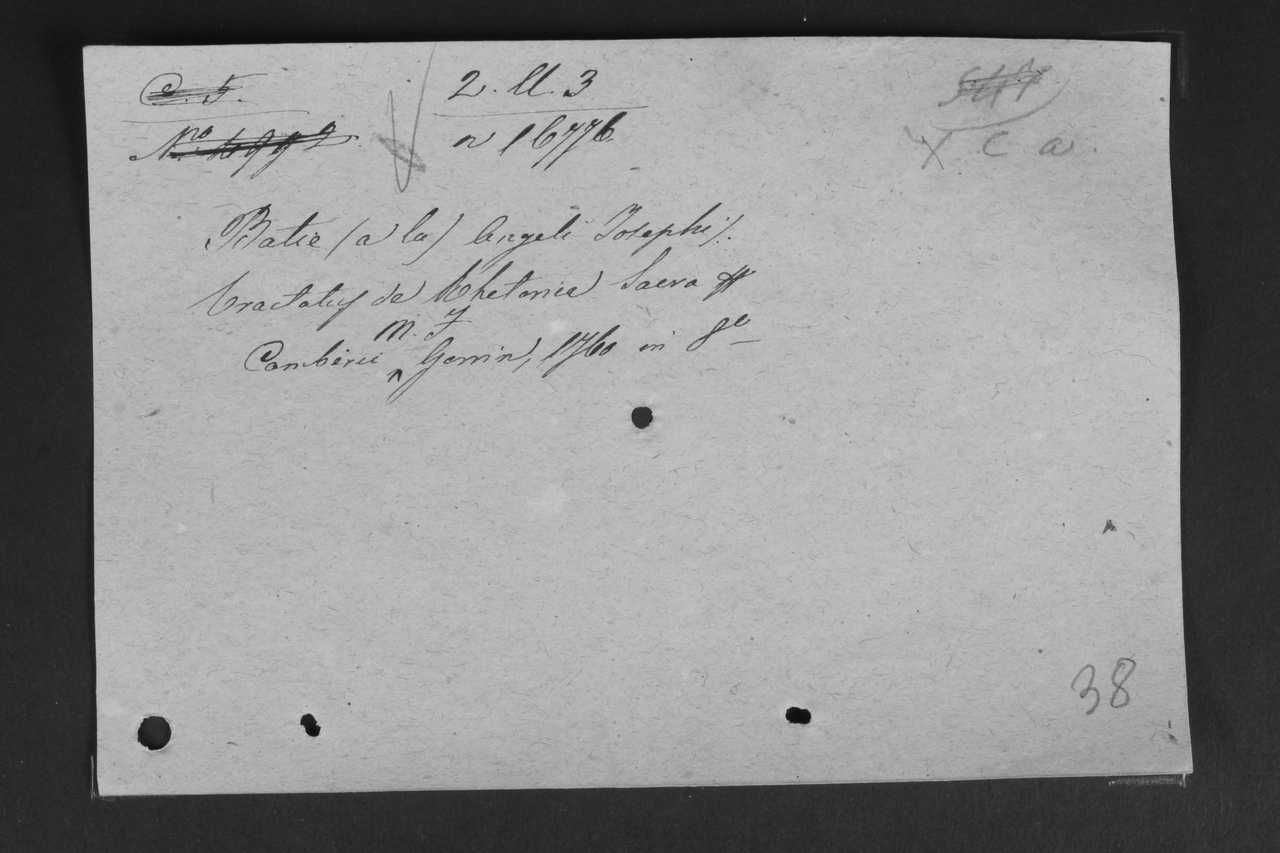 C. 5.
2. U. 3
Nº 4992
n 16776.
X C a.
Batie (a la) Angeli Josephi).
Tractatus de Rhetorica Sacra
M. F
Camberii Gorrin, 1760 in 8º
38